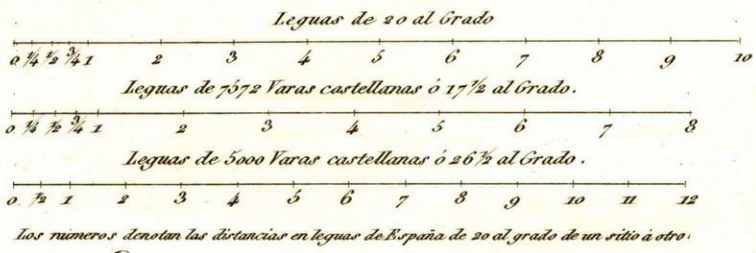 Leguas de 20 al Grado
0 1/4 1/2 3/4 1 2 3 4 5 6 7 8 9 10
Leguas de 7572 Varas castellanas ó 17 1/2 al Grado.
0 1/4 1/2 3/4 1 2 3 4 5 6 7 8
Leguas de 5000 Varas castellanas ó 26 1/2 al Grado.
0 1/2 1 2 3 4 5 6 7 8 9 10 11 12
Los números denotan las distancias en leguas de España de 20 al grado de un sitio á otro.